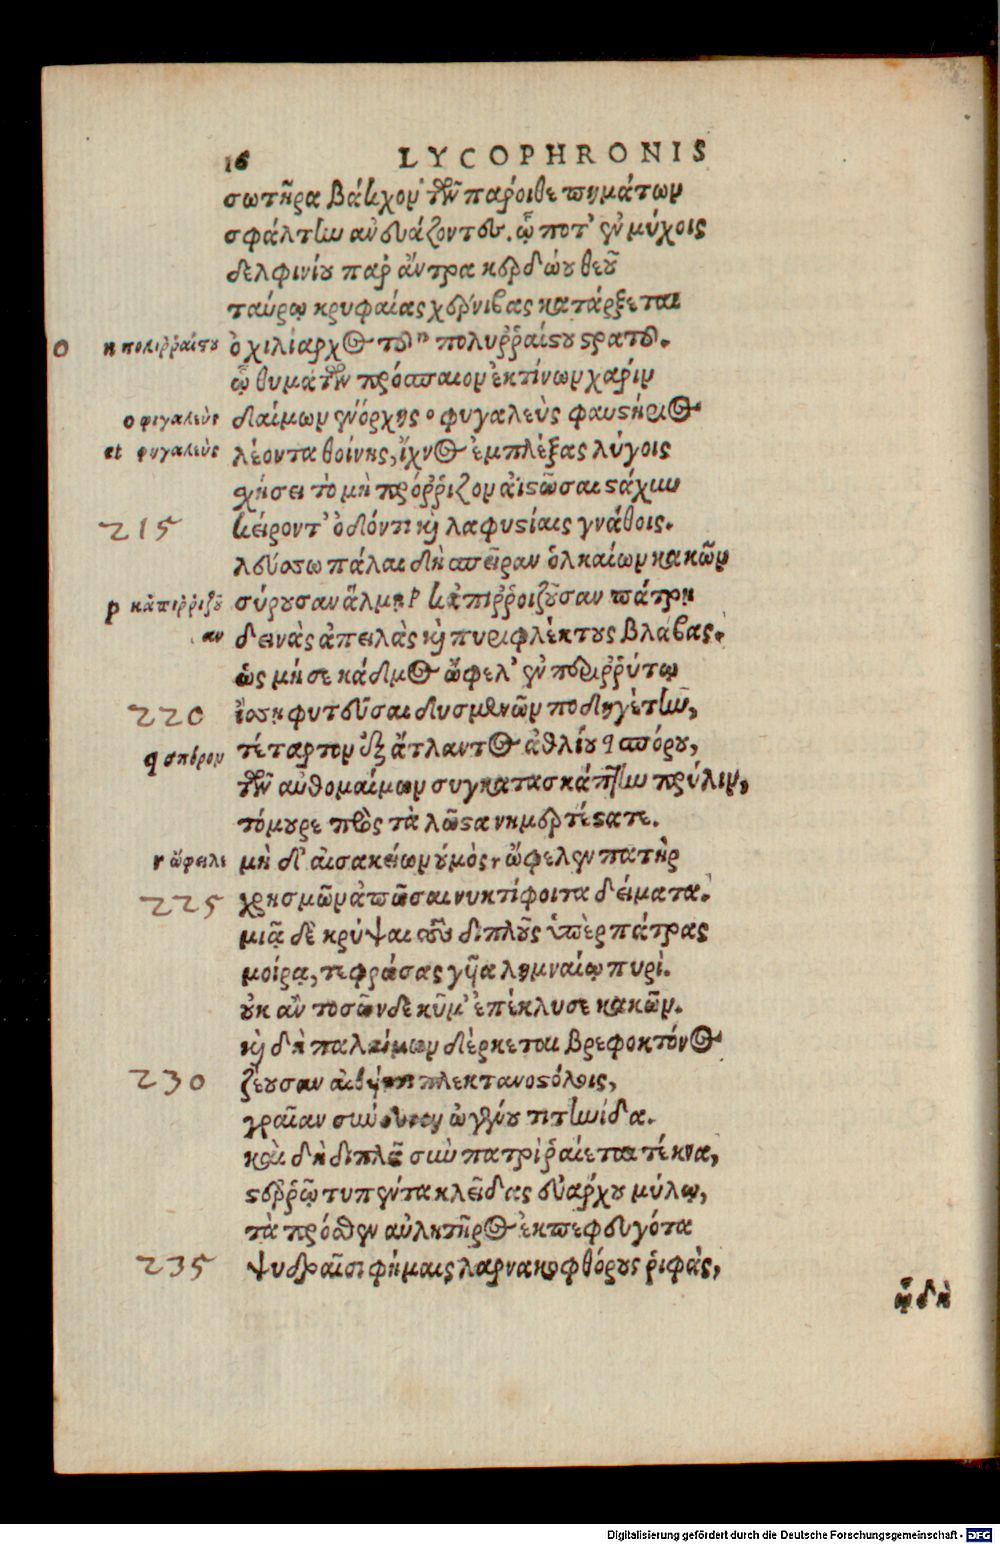 16 LYCOPHRONIS
σωτῆρα βάκχον τῶν πάροιθε πημάτων
σφάλτην ἀνευάζοντες. ᾧ ποτ' ἐν μύχοις
δελφινίου παρ' ἄντρα κερδώου θεοῦ
ταύρῳ κρυφαίας χέρνιβας κατάρξεται
ο n πολιρραίστου ὁ χιλίαρχος τοῦ n πολυῤῥαίστου στρατοῦ.
ᾧ θυμάτων πρόσπαιον ἐκτίνων χάριν
ο φιγαλεὺς δαίμων ἐνόρχης ο φυγαλεὺς φαυστήριος
et φηγαλεὺς λέοντα θοίνης, ἴχνος ἐμπλέξας λύγοις
σχήσει τὸ μὴ πρόῤῥιζον ἀϊστῶσαι στάχυν
215 κείροντ' ὀδόντι καὶ λαφυστίαις γνάθοις.
λεύσσω πάλαι δὴ σπεῖραν ὁλκαίων κακῶν
p κἀπιῤῥιζοῦ σύρουσαν ἅλμῃ p κἀπιῤῥοιζοῦσαν πάτρῃ
αν δεινὰς ἀπειλὰς καὶ πυριφλέκτους βλάβας.
ὡς μή σε κάδμος ὤφελ' ἐν περιῤῥύτῳ
220 ἴσσῃ φυτεῦσαι δυσμενῶν ποδηγέτην,
q σπόρον τέταρτον ἐξ ἄτλαντος ἀθλίου q σπόρου,
τῶν αὐθομαίμων συγκατασκάπτην πρύλιν,
τόμουρε πρὸς τὰ λῷστα νημερτέστατε.
r ὤφειλε μὴ δ' αἰσακείων οὑμὸς r ὤφελεν πατὴρ
225 χρησμῶν ἀπῶσαι νυκτίφοιτα δείματα.
μιᾷ δὲ κρύψαι τοὺς διπλοῦς ὑπὲρ πάτρας
μοίρᾳ, τεφρώσας γυῖα λημναίῳ πυρί.
οὐκ ἂν τοσῶνδε κῦμ' ἐπέκλυσε κακῶν.
καὶ δὴ παλαίμων δέρκεται βρεφοκτόνος
230 ζέουσαν αἰθυίαισι πλεκτανοστόλοις,
γραῖαν σύνευνον ὠγένου τιτηνίδα.
καὶ δὴ διπλᾶ σὺν πατρὶ ῥαίεται τέκνα,
στεῤῥῷ τυπέντα κλεῖδας εὐάρχου μύλῳ,
τὰ πρόσθεν αὐλητῆρος ἐκπεφευγότα
235 ψυδραῖσι φήμαις λαρνακοφθόρους ῥιφὰς,
ᾧ δὴ
Digitalisierung gefördert durch die Deutsche Forschungsgemeinschaft - DFG